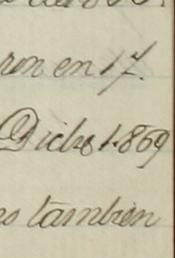 ron en 17.
Dicbe 1.869
es tambien